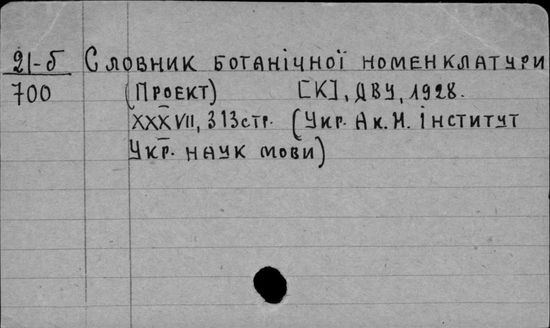 21-б Словник ботанічної номенклатури
700 (Проект) [К], ДВУ, 1928.
XXXVII, 313стр. (Укр. Ак. Н. Інститут
Укр. наук мови)